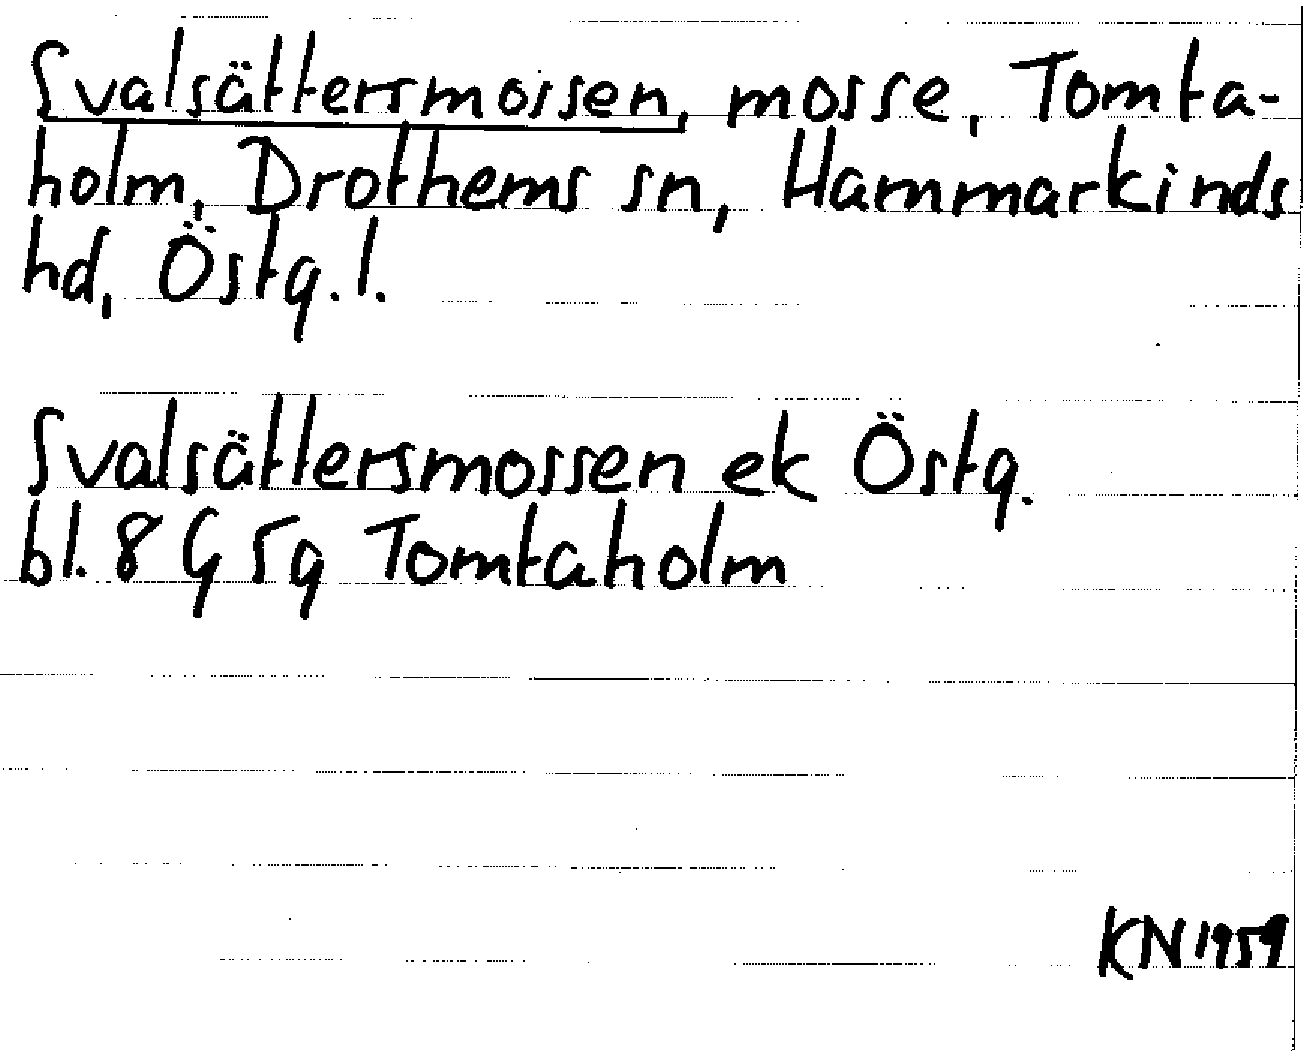 Svalsättersmossen, mosse, Tomta-
holm, Drothems sn, Hammarkinds
hd, Östg.l.
Svalsättersmossen ek Östg.
bl. 8 G 5g Tomtaholm
KN 1959